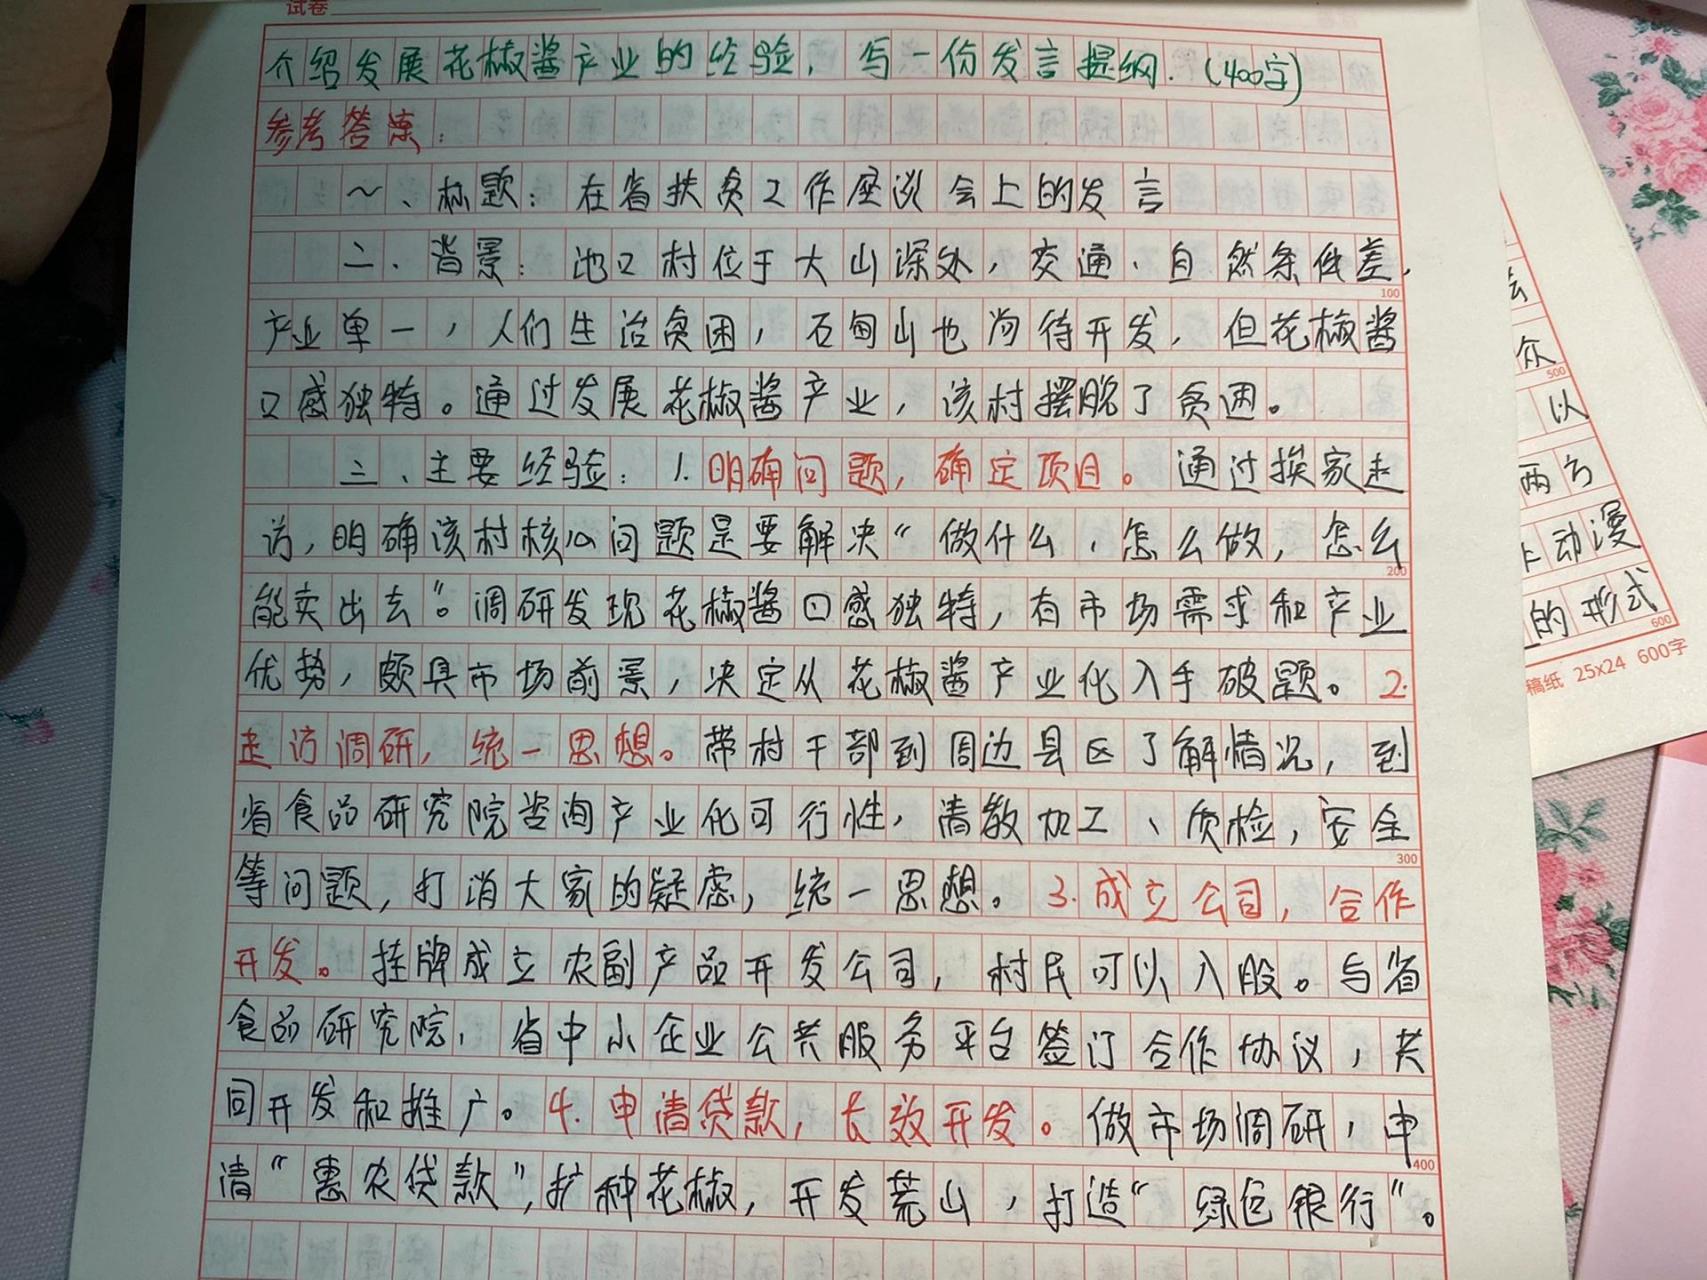 试卷
介绍发展花椒酱产业的经验,写一份发言提纲.(400字)
参考答案:
一、标题:在省扶贫工作座谈会上的发言
二、背景:池口村位于大山深处,交通、自然条件差,
产业单一,人们生活贫困,石甸山也尚待开发,但花椒酱
口感独特。通过发展花椒酱产业,该村摆脱了贫困。
100
三、主要经验:1.明确问题,确定项目。通过挨家走
访,明确该村核心问题是要解决“做什么,怎么做,怎么
200
能卖出去”。调研发现花椒酱口感独特,有市场需求和产业
优势,颇具市场前景,决定从花椒酱产业化入手破题。2.
走访调研,统一思想。带村干部到周边县区了解情况,到
省食品研究院咨询产业化可行性,请教加工、质检,安全
300
等问题,打消大家的疑虑,统一思想。3.成立公司,合作
开发。挂牌成立农副产品开发公司,村民可以入股。与省
食品研究院,省中小企业公共服务平台签订合作协议,共
同开发和推广。4.申请贷款,长效开发。做市场调研,申
400
请“惠农贷款”,扩种花椒,开发荒山,打造“绿色银行”。
众
500
以
两方
动漫
的形式
600
稿纸 25x24 600字